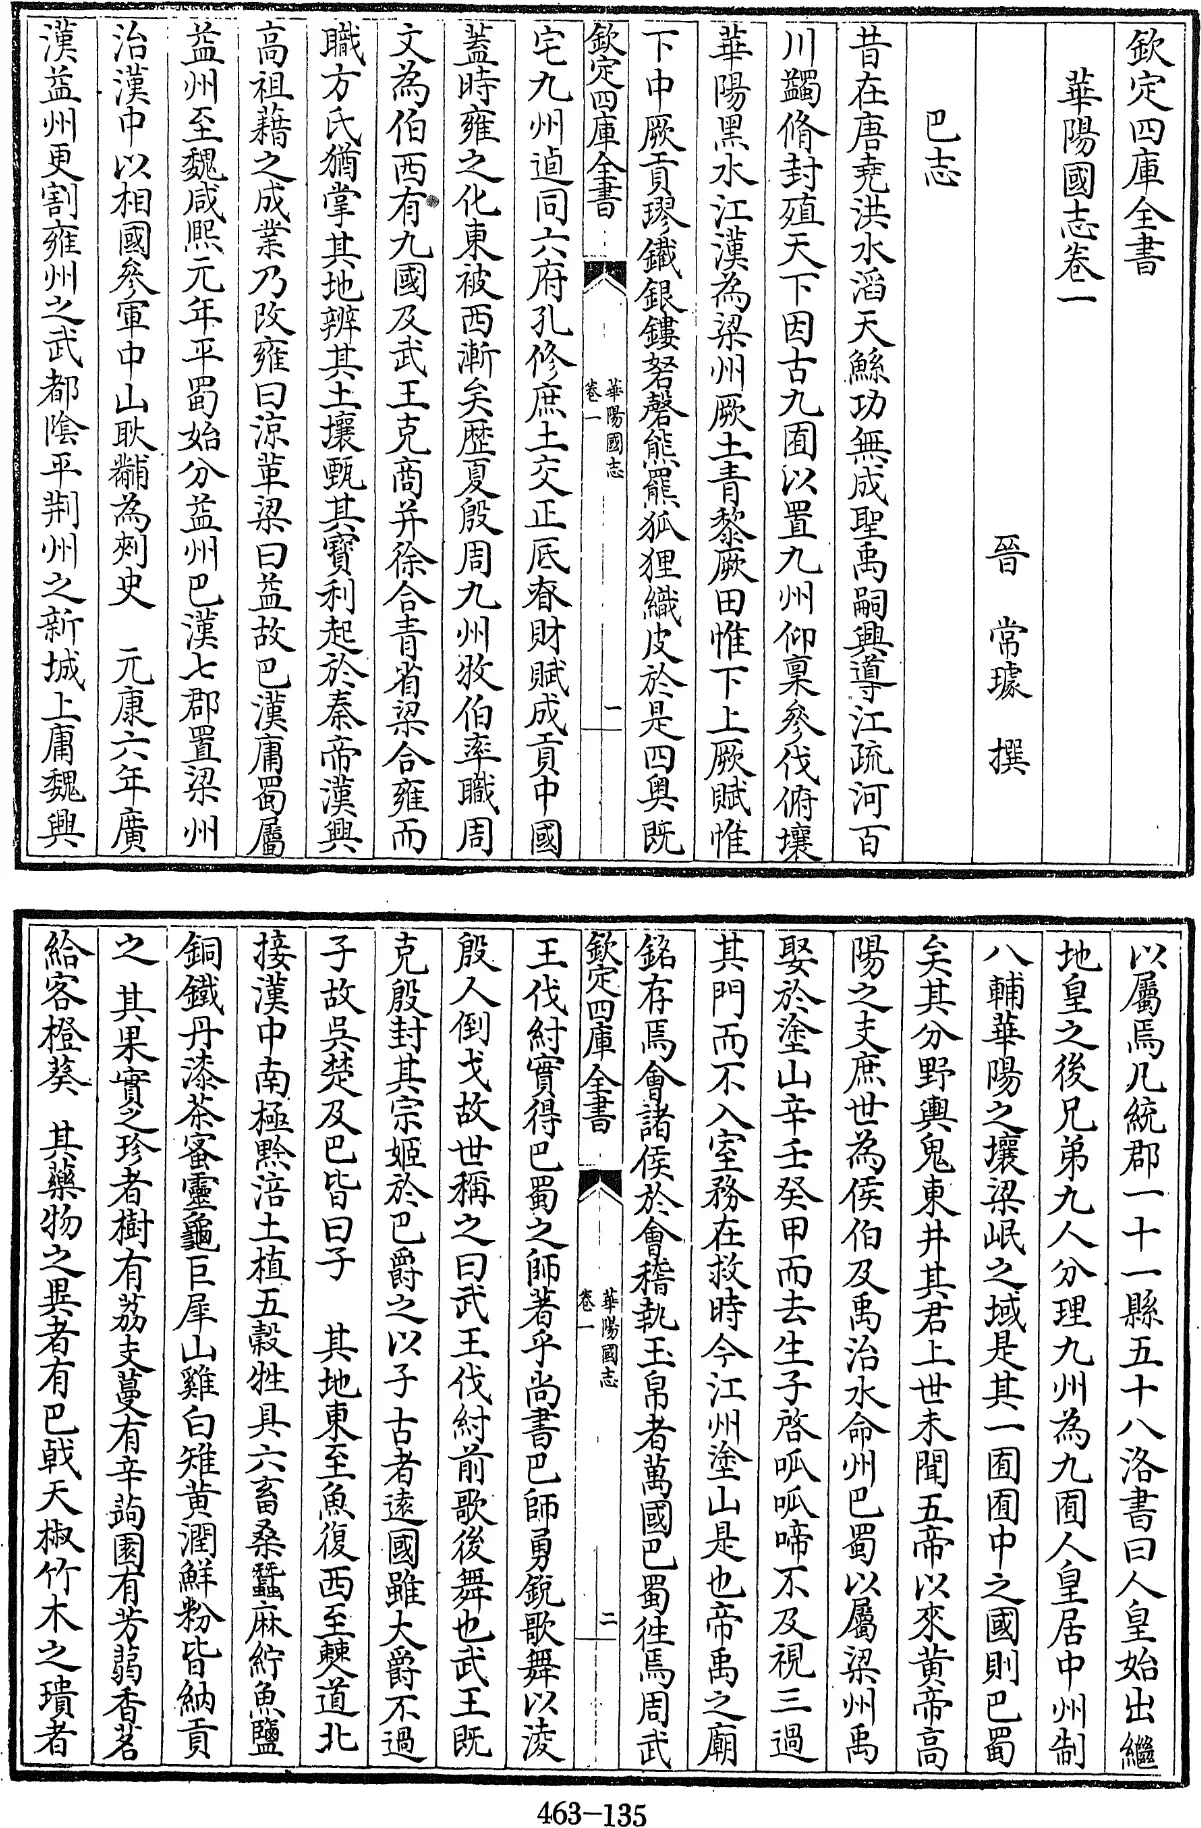 欽定四庫全書
華陽國志卷一
晉 常璩 撰
巴志
昔在唐堯洪水滔天鯀功無成聖禹嗣興導江疏河百
川蠲脩封殖天下因古九囿以置九州仰稟參伐俯壤
華陽黑水江漢為梁州厥土青黎厥田惟下上厥賦惟
下中厥貢璆鐵銀鏤砮磬熊羆狐狸織皮於是四奥既
欽定四庫全書
華陽國志
卷一
一
宅九州逌同六府孔修庶土交正厎眘財賦成貢中國
蓋時雍之化東被西漸矣歷夏殷周九州牧伯率職周
文為伯西有九國及武王克商并徐合青省梁合雍而
職方氏猶掌其地辨其土壤甄其寶利起於秦帝漢興
高祖藉之成業乃改雍曰涼革梁曰益故巴漢庸蜀屬
益州至魏咸熙元年平蜀始分益州巴漢七郡置梁州
治漢中以相國參軍中山耿黼為刺史 元康六年廣
漢益州更割雍州之武都陰平荆州之新城上庸魏興
以屬焉凡統郡一十一縣五十八洛書曰人皇始出繼
地皇之後兄弟九人分理九州為九囿人皇居中州制
八輔華陽之壤梁岷之域是其一囿囿中之國則巴蜀
矣其分野輿鬼東井其君上世未聞五帝以來黄帝高
陽之支庶世為侯伯及禹治水命州巴蜀以屬梁州禹
娶於塗山辛壬癸甲而去生子啓呱呱啼不及視三過
其門而不入室務在救時今江州塗山是也帝禹之廟
銘存焉會諸侯於會稽執玉帛者萬國巴蜀徃焉周武
欽定四庫全書
華陽國志
卷一
二
王伐紂實得巴蜀之師著乎尚書巴師勇銳歌舞以淩
殷人倒戈故世稱之曰武王伐紂前歌後舞也武王既
克殷封其宗姬於巴爵之以子古者遠國雖大爵不過
子故吳楚及巴皆曰子 其地東至魚復西至僰道北
接漢中南極黔涪土植五穀牲具六畜桑蠶麻紵魚鹽
銅鐵丹漆茶蜜靈龜巨犀山雞白雉黄潤鮮粉皆納貢
之 其果實之珍者樹有荔支蔓有辛蒟園有芳蒻香茗
給客橙葵 其藥物之異者有巴戟天椒竹木之璝者
463-135